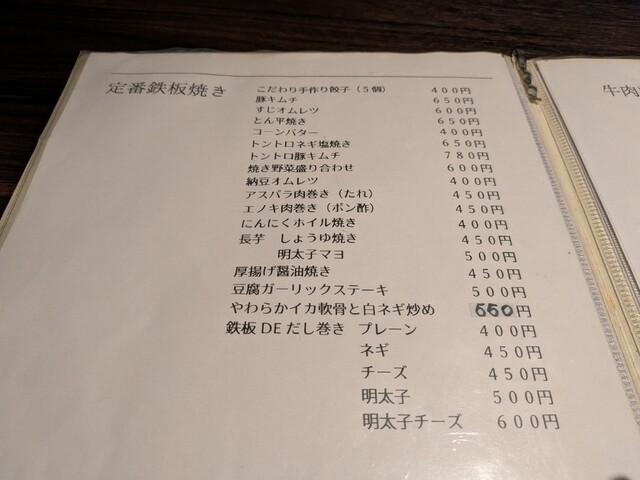 定番鉄板焼き
こだわり手作り餃子（５個） ４００円
豚キムチ ６５０円
すじオムレツ ６００円
とん平焼き ６５０円
コーンバター ４００円
トントロネギ塩焼き ６５０円
トントロ豚キムチ ７８０円
焼き野菜盛り合わせ ６００円
納豆オムレツ ４００円
アスパラ肉巻き（たれ） ４５０円
エノキ肉巻き（ポン酢） ４５０円
にんにくホイル焼き ４００円
長芋　しょうゆ焼き ４５０円
明太子マヨ ５００円
厚揚げ醤油焼き ４５０円
豆腐ガーリックステーキ ５００円
やわらかイカ軟骨と白ネギ炒め 550円
鉄板DEだし巻き　プレーン ４００円
ネギ ４５０円
チーズ ４５０円
明太子 ５００円
明太子チーズ ６００円
牛肉